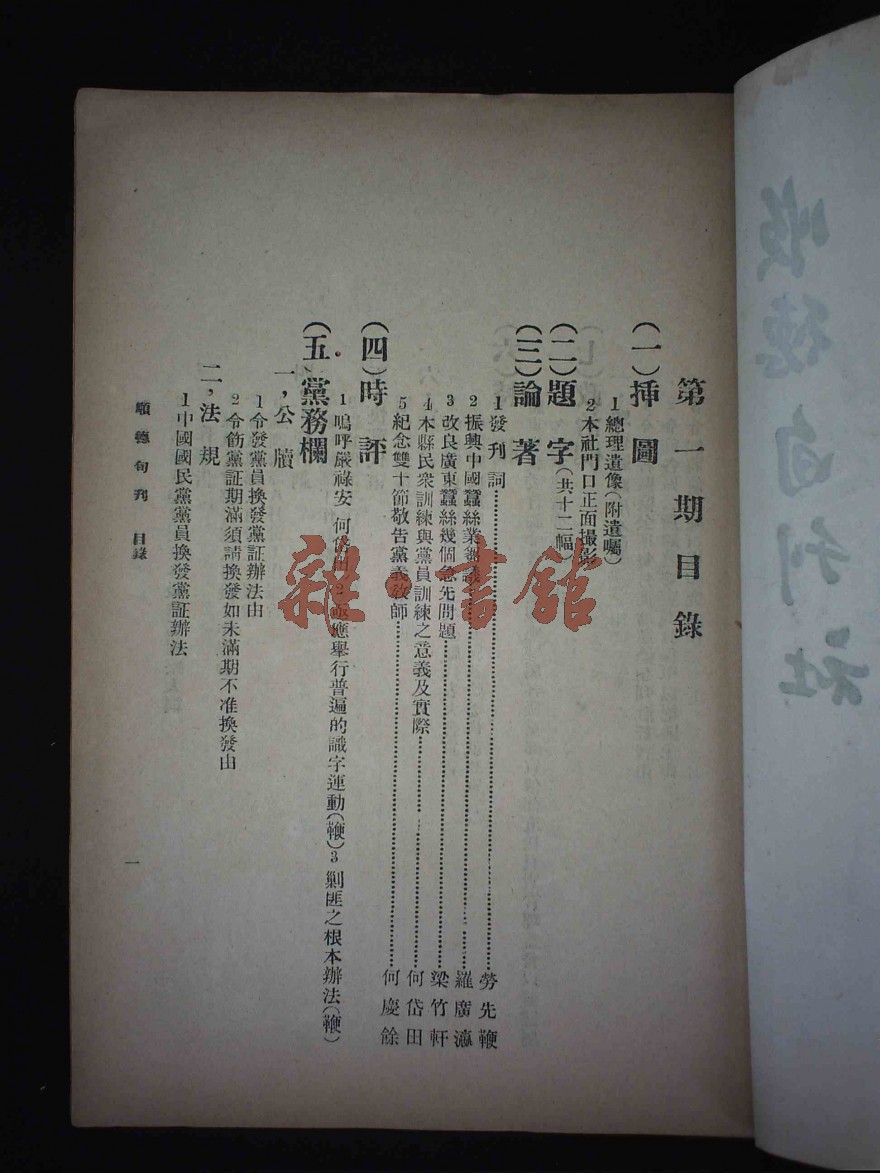 第一期目錄
(一)挿圖
1總理遺像(附遺囑)
2本社門口正面撮影
(二)題字(共十二幅)
(三)論著
1發刊詞……勞先鞭
2振興中國蠶絲業芻議……羅廣瀛
3改良廣東蠶絲幾個急先問題……梁竹軒
4本縣民衆訓練與黨員訓練之意義及實際……何岱田
5紀念雙十節敬告黨義敎師……何慶餘
(四)時評
1嗚呼嚴祿安 何岱田 2 應舉行普遍的識字運動(鞭)3剿匪之根本辦法(鞭)
(五)黨務欄
一,公牘
1令發黨員換發黨証辦法由
2令飭黨証期滿須請換發如未滿期不准換發由
二,法規
1中國國民黨黨員換發黨証辦法
順德旬刋 目錄
一
順德旬刊社
雜·書館